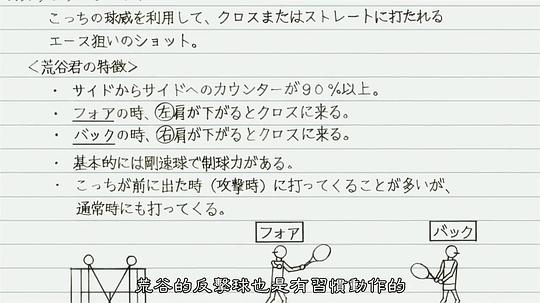 こっちの球威を利用して、クロスまたはストレートに打たれる
エース狙いのショット。
<荒谷君の特徴>
・ サイドからサイドへのカウンターが90%以上。
・ フォアの時、左肩が下がるとクロスに来る。
・ バックの時、右肩が下がるとクロスに来る。
・ 基本的には剛速球で制球力がある。
・ こっちが前に出た時(攻撃時)に打ってくることが多いが、
通常時にも打ってくる。
フォア
バック
荒谷的反擊球也是有習慣動作的